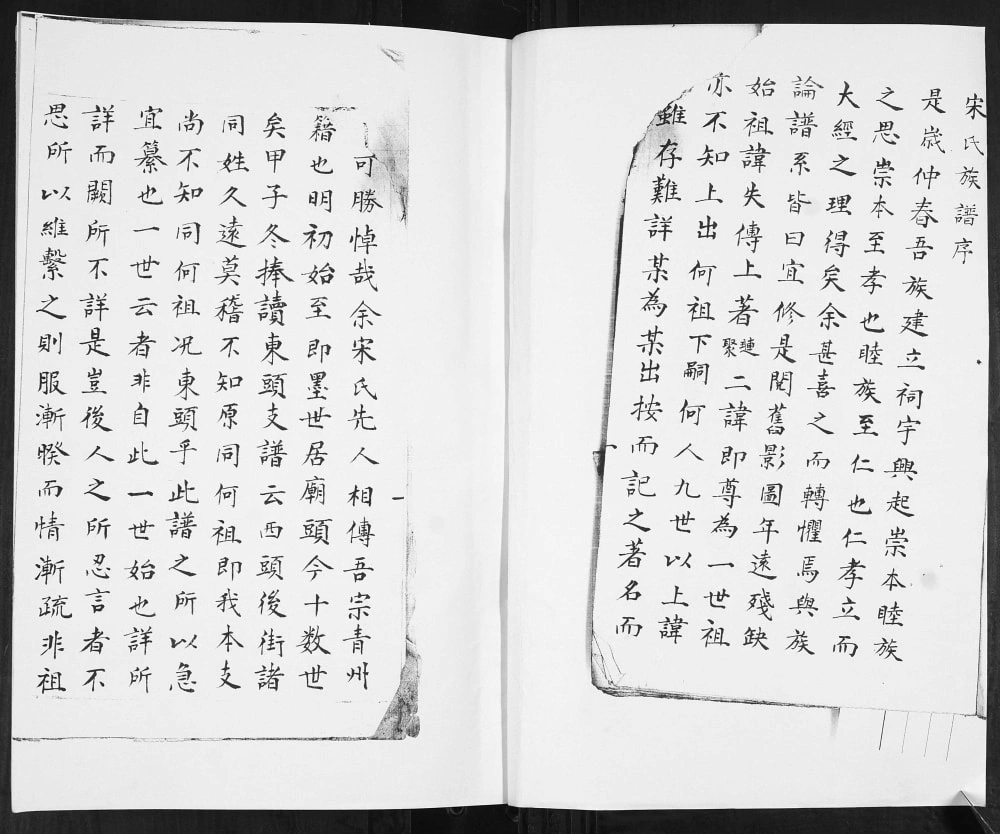 宋氏族譜序
是歲仲春吾族建立祠宇興起崇本睦族
之思崇本至孝也睦族至仁也仁孝立而
大經之理得矣余甚喜之而轉懼焉與族
論譜系皆曰宜修是閱舊影圖年遠殘缺
始祖諱失傳上著璉聚二諱即尊為一世祖
亦不知上出何祖下嗣何人九世以上諱
雖存難詳某為某出按而記之著名而
可勝悼哉余宋氏先人相傳吾宗青州
籍也明初始至即墨世居廟頭今十数世
矣甲子冬捧讀東頭支譜云西頭後街諸
同姓久遠莫稽不知原同何祖即我本支
尚不知同何祖况東頭乎此譜之所以急
宜纂也一世云者非自此一世始也詳所
詳而闕所不詳是豈後人之所忍言者不
思所以維繫之則服漸睽而情漸疏非祖